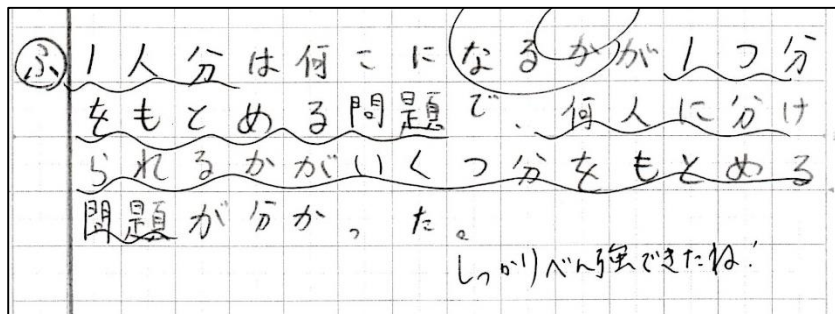 ふ 1人分は何こになるかが1つ分
をもとめる問題で、何人に分け
られるかがいくつ分をもとめる
問題が分かった。
しっかりべん強できたね!